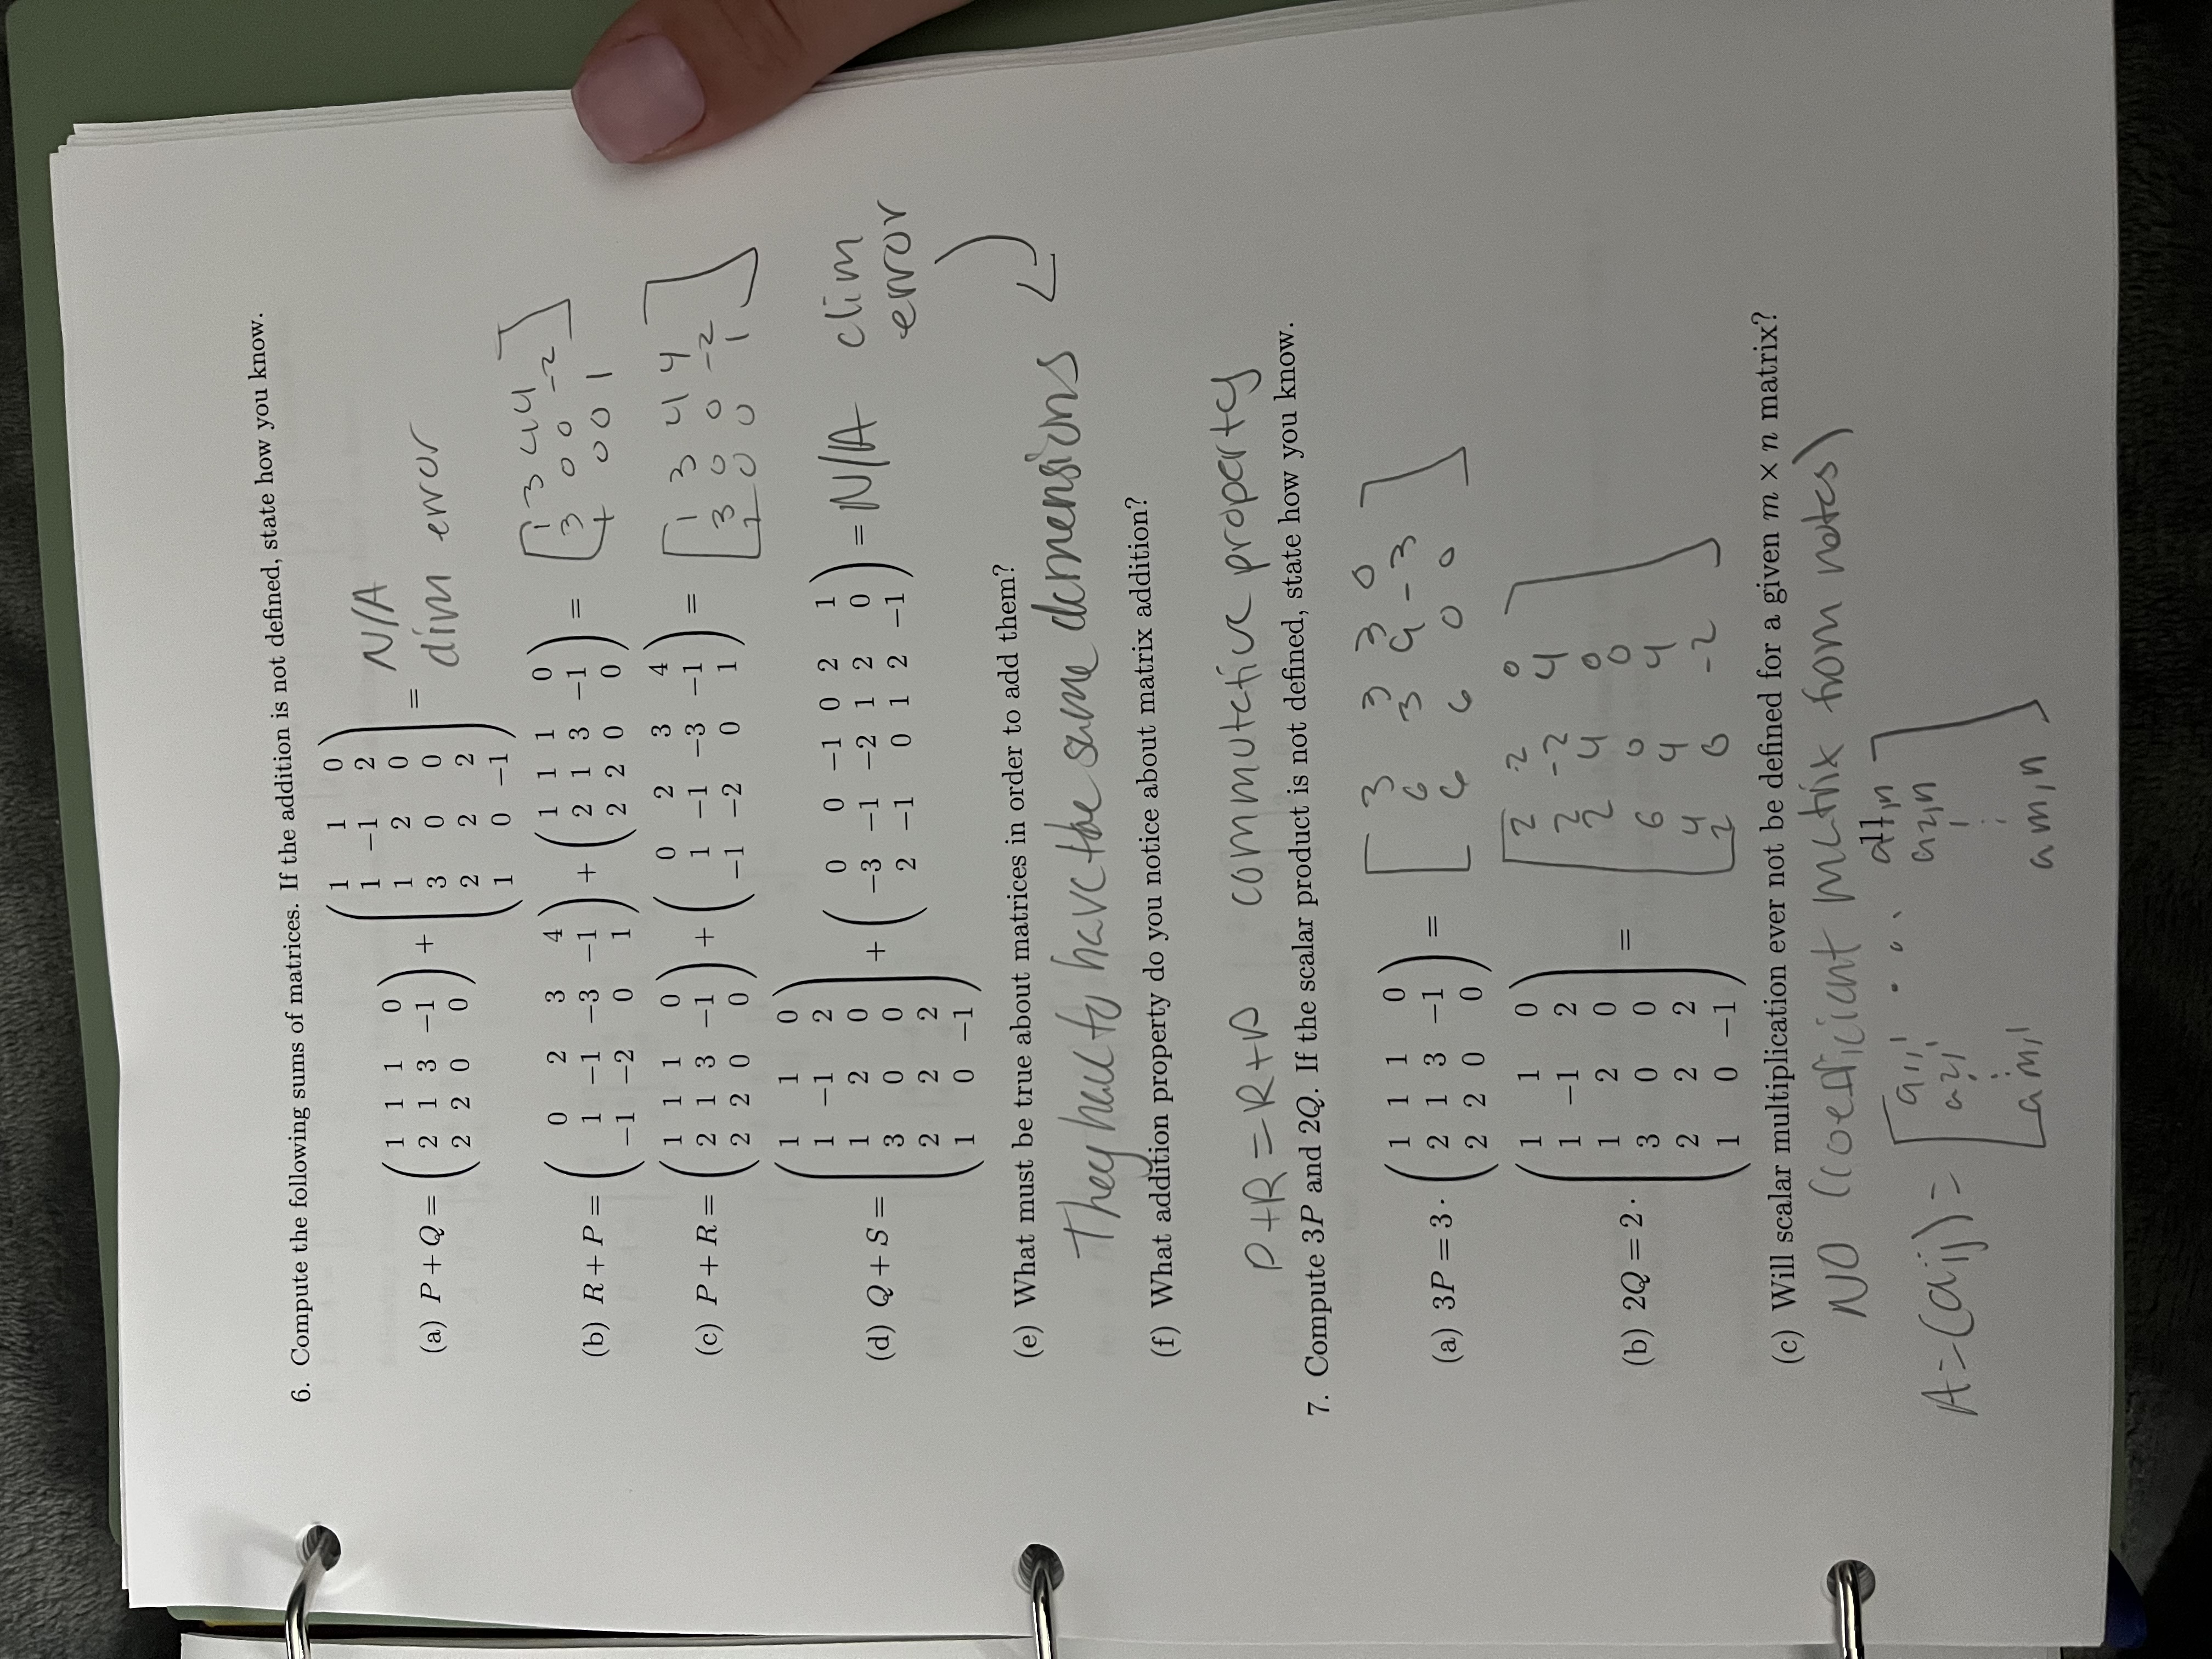 6. Compute the following sums of matrices. If the addition is not defined, state how you know.
(a) P + Q = ( 1 1 1 0 ; 2 1 3 −1 ; 2 2 0 0 ) + ( 1 1 0 ; 1 −1 2 ; 1 2 0 ; 3 0 0 ; 2 2 2 ; 1 0 −1 ) = N/A
dim error
(b) R + P = ( 0 2 3 4 ; 1 −1 −3 −1 ; −1 −2 0 1 ) + ( 1 1 1 0 ; 2 1 3 −1 ; 2 2 0 0 ) = [ 1 3 4 4 ; 3 0 0 -2 ; 1 0 0 1 ]
(c) P + R = ( 1 1 1 0 ; 2 1 3 −1 ; 2 2 0 0 ) + ( 0 2 3 4 ; 1 −1 −3 −1 ; −1 −2 0 1 ) = [ 1 3 4 4 ; 3 0 0 -2 ; 1 0 0 1 ]
(d) Q + S = ( 1 1 0 ; 1 −1 2 ; 1 2 0 ; 3 0 0 ; 2 2 2 ; 1 0 −1 ) + ( 0 0 −1 0 2 1 ; −3 −1 −2 1 2 0 ; 2 −1 0 1 2 −1 ) = N/A dim
error
(e) What must be true about matrices in order to add them?
They have to have the same demensions
(f) What addition property do you notice about matrix addition?
P+R = R+P commutative property
7. Compute 3P and 2Q. If the scalar product is not defined, state how you know.
(a) 3P = 3 · ( 1 1 1 0 ; 2 1 3 −1 ; 2 2 0 0 ) = [ 3 3 3 0 ; 6 3 9 -3 ; 6 6 0 0 ]
(b) 2Q = 2 · ( 1 1 0 ; 1 −1 2 ; 1 2 0 ; 3 0 0 ; 2 2 2 ; 1 0 −1 ) = [ 2 2 0 ; 2 -2 4 ; 2 4 0 ; 6 0 0 ; 4 4 4 ; 2 0 -2 ]
(c) Will scalar multiplication ever not be defined for a given m × n matrix?
NO (coefficient matrix from notes)
A = (aij) = [ a1,1 ... a1,n ; a2,1 a2,n ; ⋮ ⋮ ; am,1 am,n ]